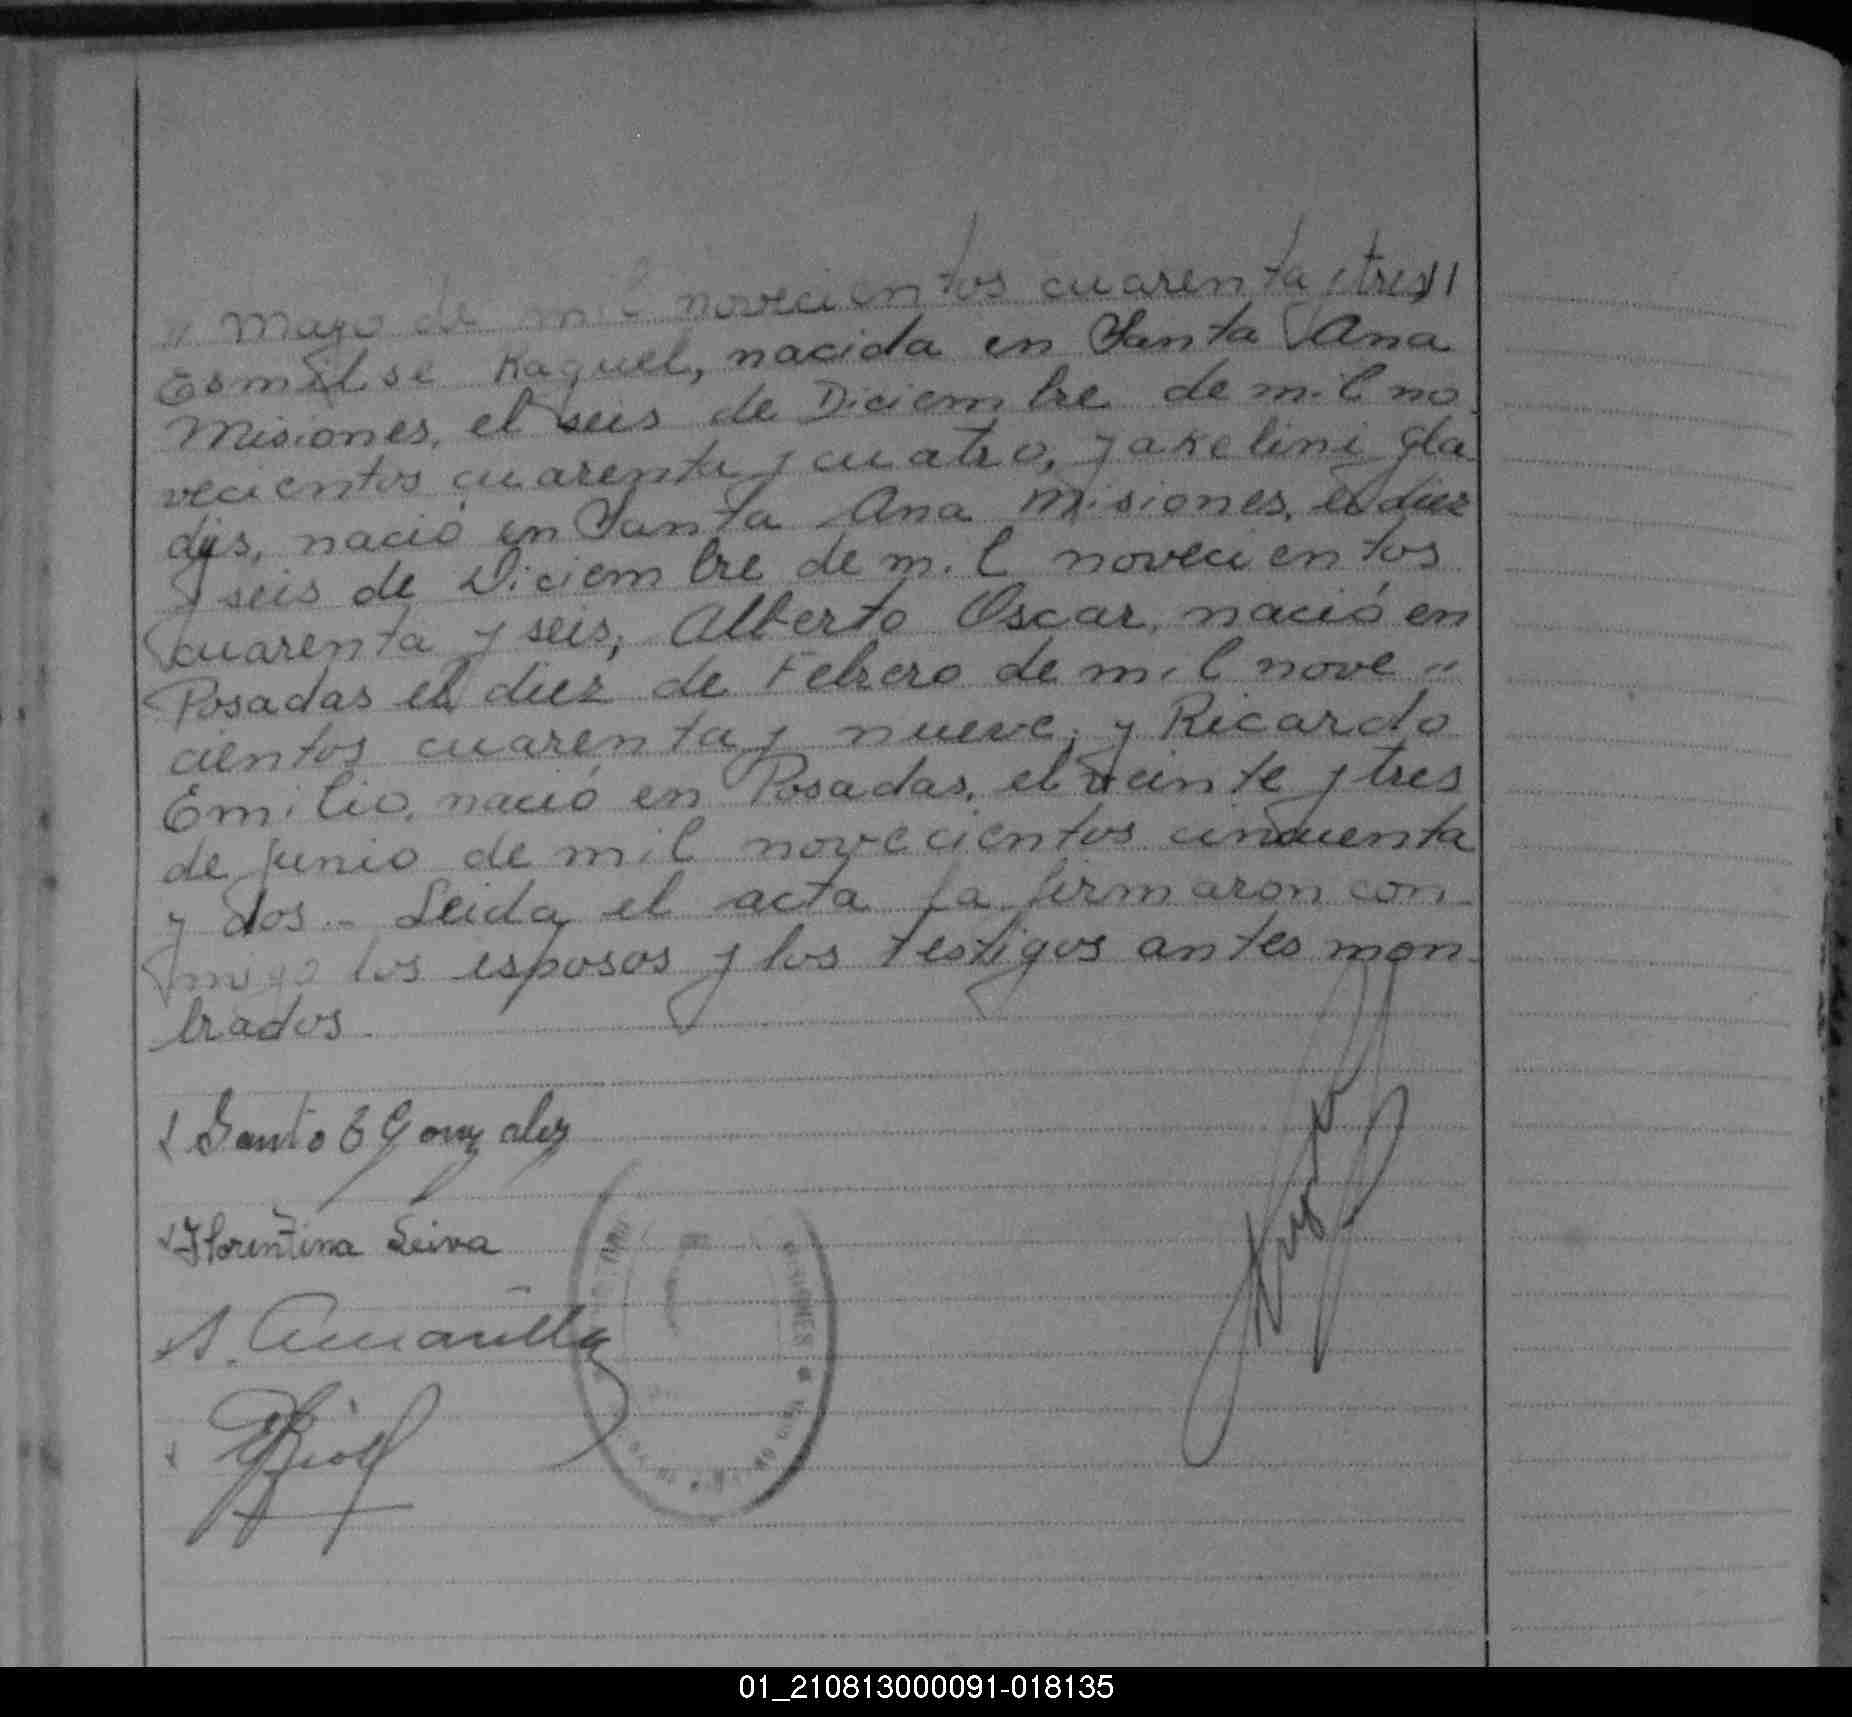 " Mayo de mil novecientos cuarenta y tres //
Esmilse Raquel, nacida en Santa Ana
Misiones, el seis de Diciembre de mil no-
vecientos cuarenta y cuatro, Jakelini Gla
dys, nació en Santa Ana Misiones, el diez
y seis de Diciembre de mil novecientos
cuarenta y seis, Alberto Oscar, nació en
Posadas el diez de Febrero de mil nove "
cientos cuarenta y nueve, y Ricardo
Emilio, nació en Posadas, el veinte y tres
de Junio de mil novecientos cincuenta
y dos - Leida el acta la firmaron con-
migo los esposos y los testigos antes mon-
brados.
Santo E Gonzalez
Florentina Leiva
A. Amarilla
MISIONES
01_210813000091-018135